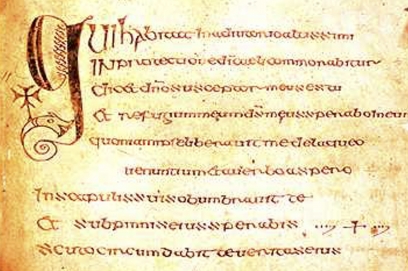 Qui habitat in adiutorio altissimi
in protectione di caeli commorabitur
dicet dno susceptor meus es tu
et refugium meum ds meus sperabo in eum
quoniam ipse liberauit me de laqueo
uenantium et a uerbo aspero
In scapulis suis obumbrauit te
et sub pinnis eius sperabis
scuto circumdabit te ueritas eius